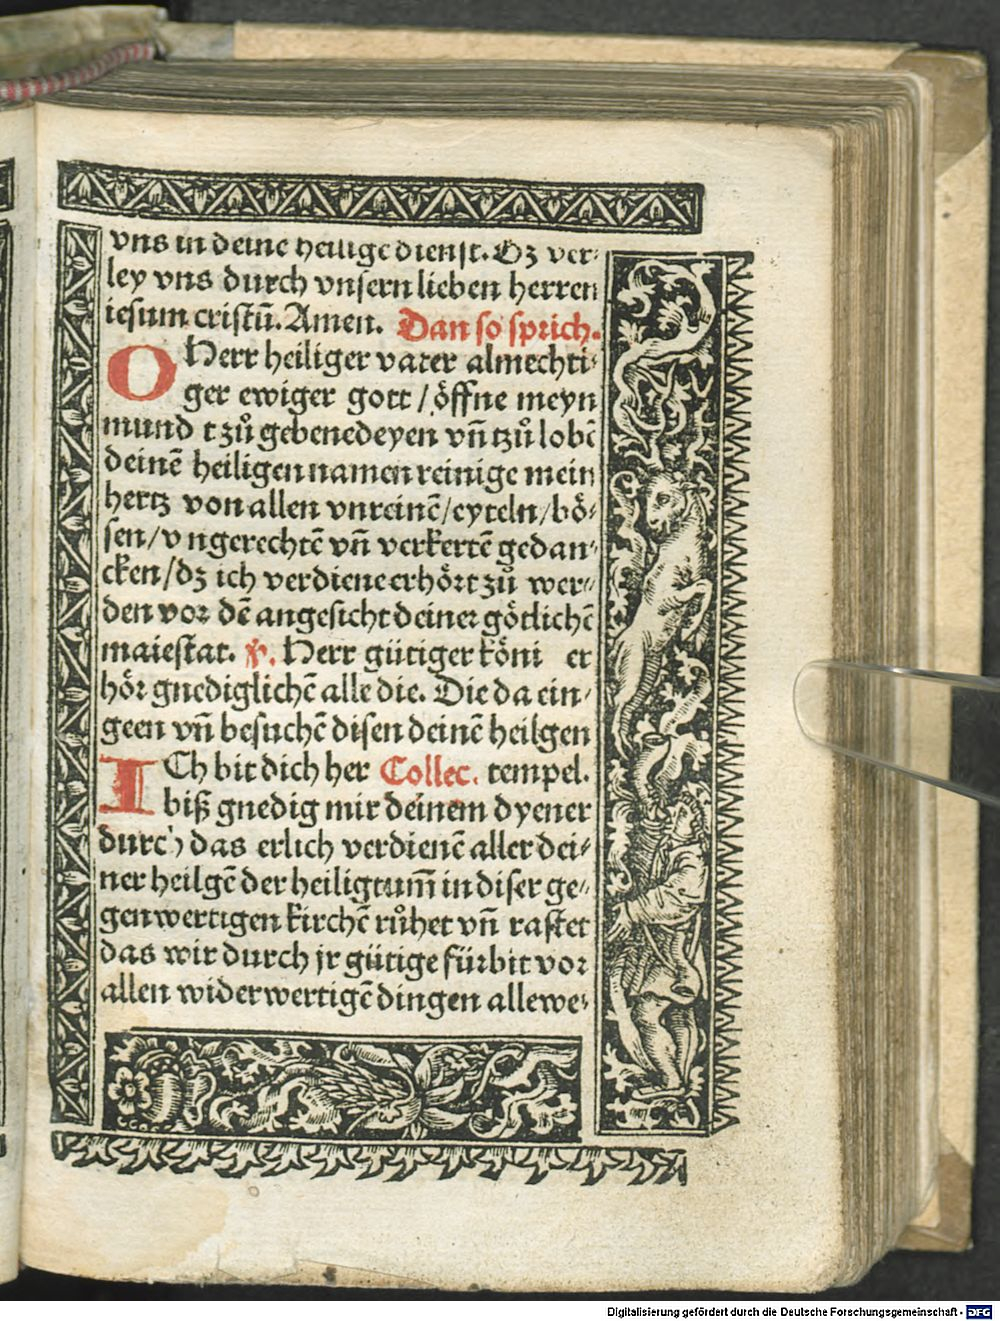 vns in deine heilige dienst. Dz ver-
ley vns durch vnsern lieben herren
iesum cristū. Amen. Dan so sprich.
O Herr heiliger vater almechti-
ger ewiger gott / öffne meyn
mund tzů gebenedeyen vñ tzů lobē
deinē heiligen namen reinige mein
hertz von allen vnreinē / eyteln / bö-
sen / vngerechtē vñ verkertē gedan-
cken / dz ich verdiene erhört zů wer-
den vor dē angesicht deiner götlichē
maiestat. Herr gütiger köni er
hör gnediglichē alle die. Die da ein-
geen vñ besuchē disen deinē heilgen
ICh bit dich her Collec. tempel.
biß gnedig mir deinem dyener
durch das erlich verdienē aller dei-
ner heilgē der heiligtum̄ in diser ge-
genwertigen kirchē růhet vñ rastet
das wir durch jr gütige fürbit vor
allen widerwertigē dingen allewe-
Digitalisierung gefördert durch die Deutsche Forschungsgemeinschaft - DFG